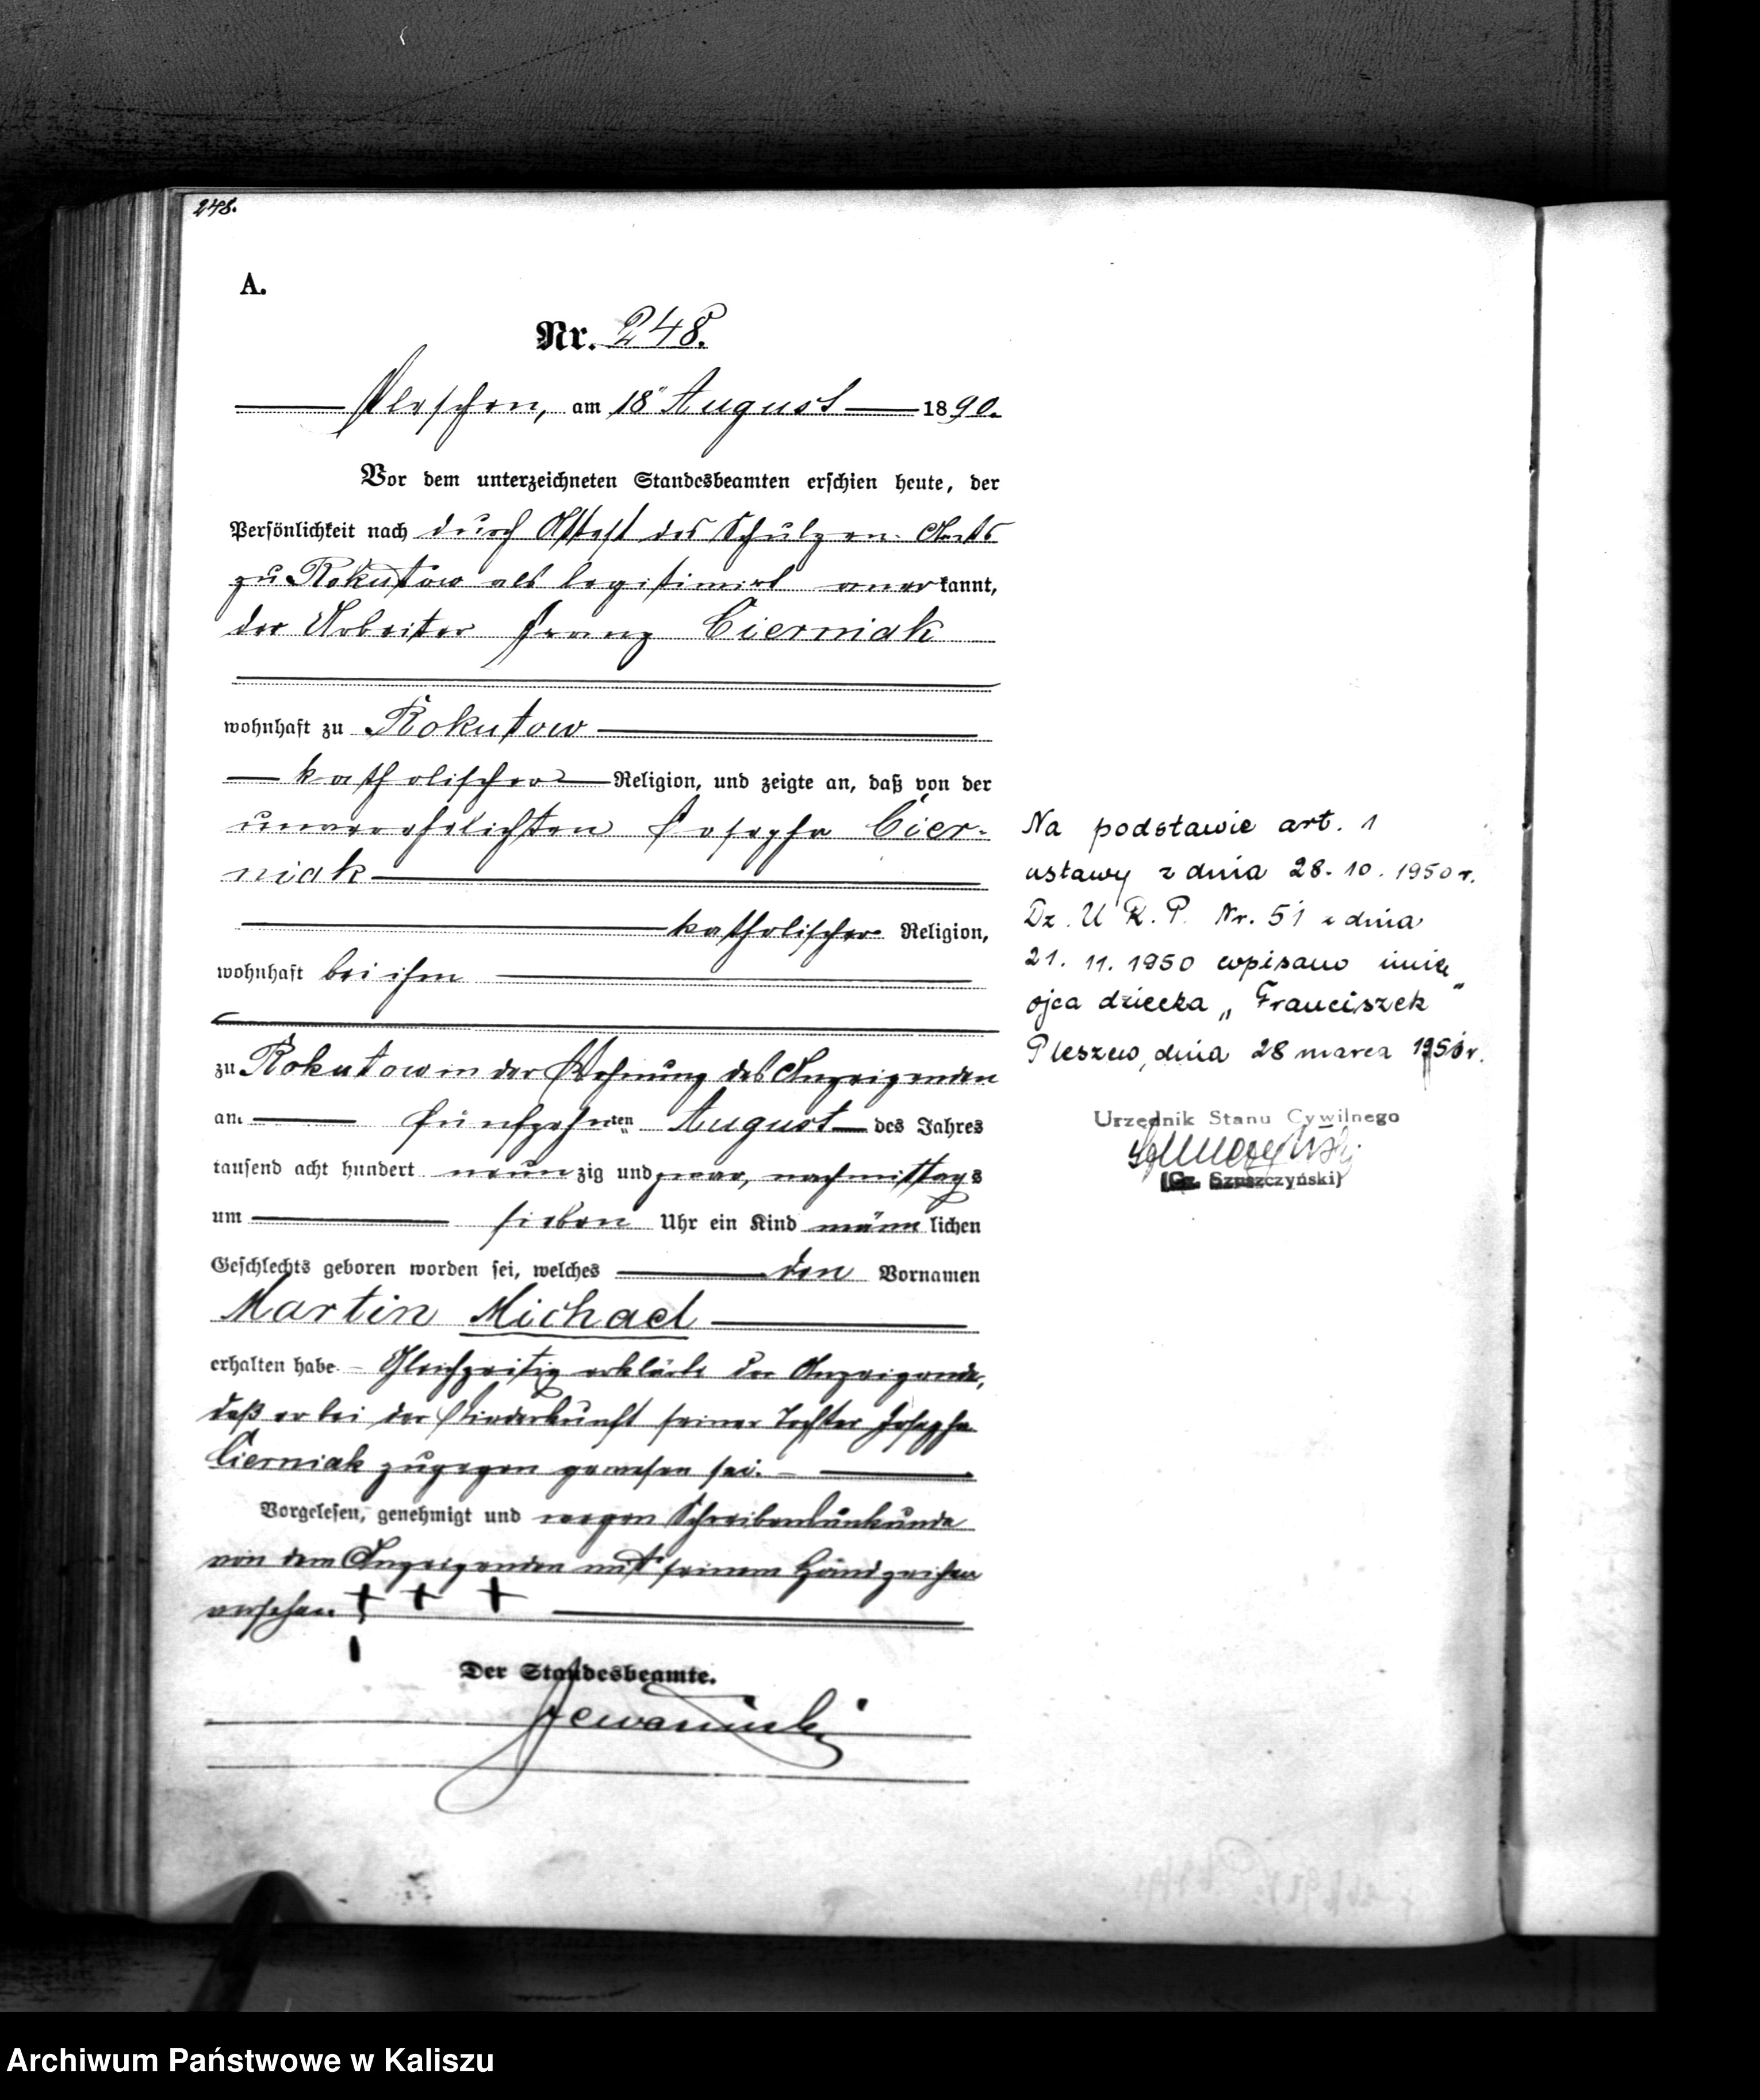 248.
A.
Nr. 248.
Pleschen, am 18ⁿ August 1890.
Vor dem unterzeichneten Standesbeamten erschien heute, der
Persönlichkeit nach durch Attest des Schulzen-Amts
zu Rokutow als legitimirt anerkannt,
der Arbeiter Franz Cierniak
wohnhaft zu Rokutow
katholischer Religion, und zeigte an, daß von der
unverehelichten Josepha Cier-
niak
katholischer Religion,
wohnhaft bei ihm
zu Rokutow in der Wohnung des Anzeigenden
am fünfzehnten August des Jahres
tausend acht hundert neunzig und zwar, nachmittags
um sieben Uhr ein Kind männlichen
Geschlechts geboren worden sei, welches den Vornamen
Martin Michael
erhalten habe. – Gleichzeitig erklärte der Anzeigende,
daß er bei der Niederkunft seiner Tochter Josepha
Cierniak zugegen gewesen sei. –
Vorgelesen, genehmigt und wegen Schreibensunkunde
von dem Anzeigenden mit seinem Handzeichen
versehen. + + +
Der Standesbeamte.
Na podstawie art. 1
ustawy z dnia 28.10.1950 r.
Dz. U R.P. Nr. 51 z dnia
21.11.1950 wpisano imię
ojca dziecka „Franciszek"
Pleszew, dnia 28 marca 1951 r.
Urzędnik Stanu Cywilnego
(Cz. Szuszczyński)
Archiwum Państwowe w Kaliszu